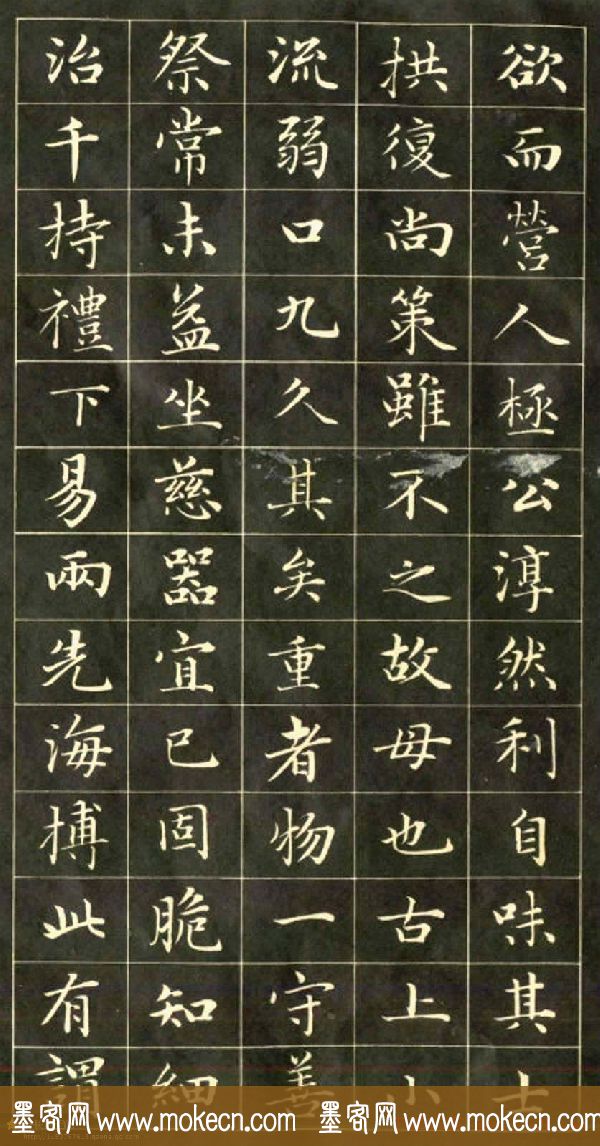 欲而營人極公淳然利自味其
拱復尚策雖不之故母也古上小
流弱口九久其矣重者物一守善
祭常未益坐慈器宜已固脆知細
治千持禮下易兩先海搏此有謂
墨客网 www.mokecn.com 墨客网 www.mokecn.com